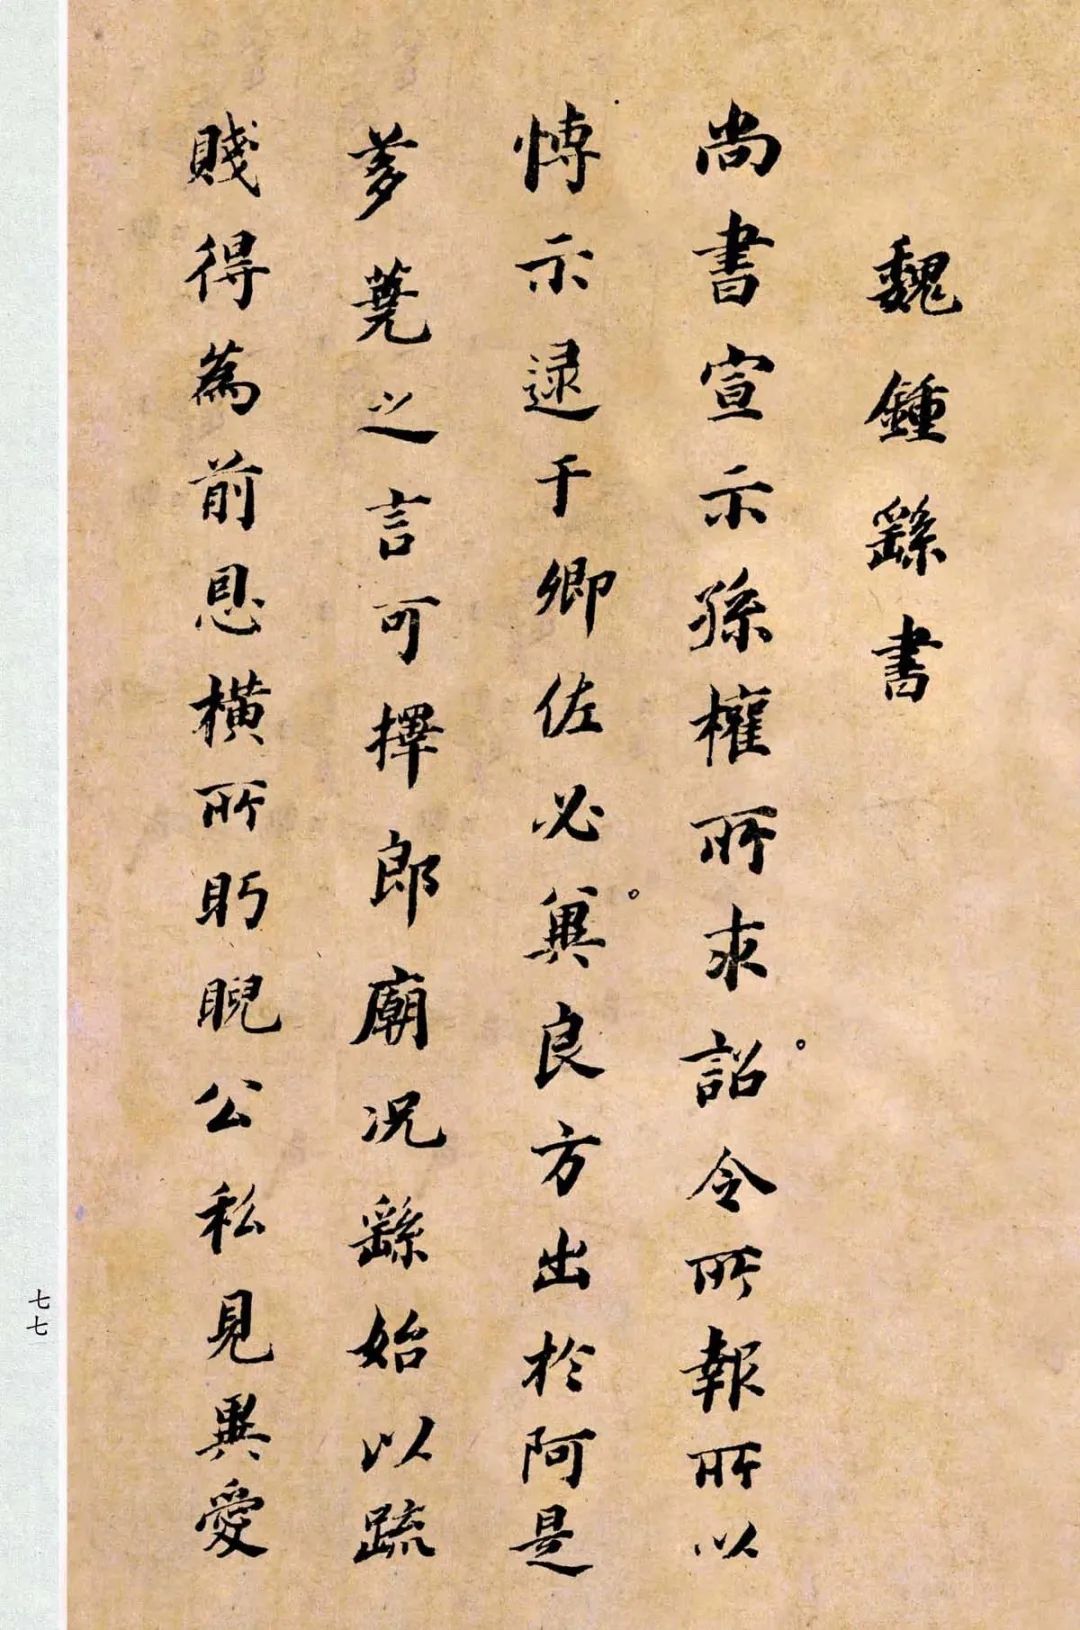 魏鍾繇書
尚書宣示孫權所求詔令所報所以
愽示逮于卿佐必冀良方出於阿是
芻蕘之言可擇郎廟况繇始以疏
賤得為前恩横所眄睨公私見異愛
七七